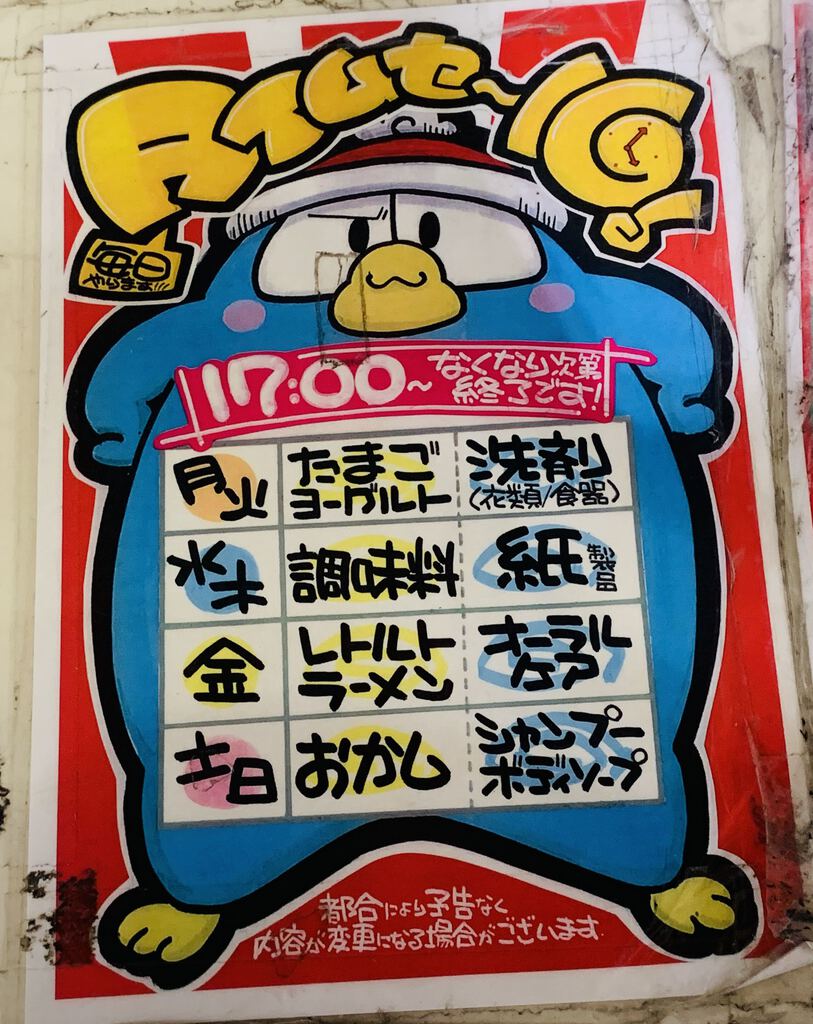 タイムセ〜ル!
毎日
やります!!!
17:00〜
なくなり次第
終了です!
月火
たまご
ヨーグルト
洗剤
(衣類/食器)
水木
調味料
紙製品
金
レトルト
ラーメン
オーラル
ケア
土日
おかし
シャンプー
ボディソープ
都合により予告なく
内容が変更になる場合がございます